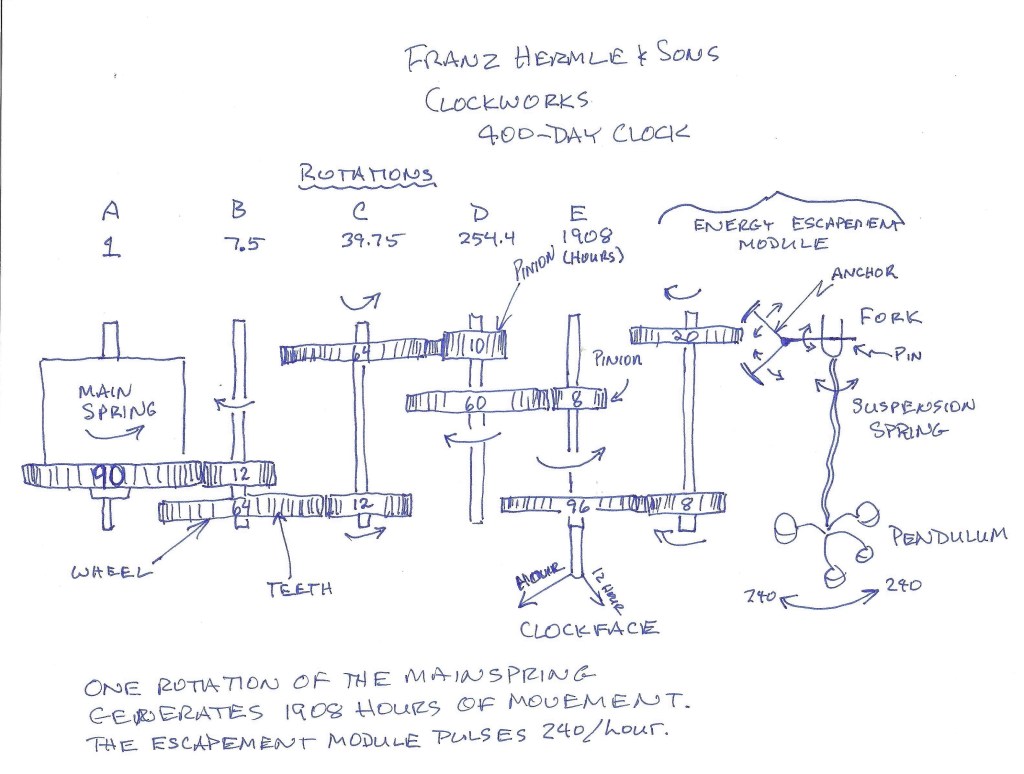 FRANZ HERMLE & SONS
CLOCKWORKS
400-DAY CLOCK
ROTATIONS
A B C D E
1 7.5 39.75 254.4 1908
(HOURS)
ENERGY ESCAPEMENT
MODULE
PINION
ANCHOR
FORK
PIN
64
10
20
PINION
MAIN
SPRING
60
8
SUSPENSION
SPRING
90
12
64
12
96
8
PENDULUM
WHEEL
TEETH
12 HOUR
240 240
CLOCKFACE
ONE ROTATION OF THE MAINSPRING
GENERATES 1908 HOURS OF MOVEMENT.
THE ESCAPEMENT MODULE PULSES 240/HOUR.